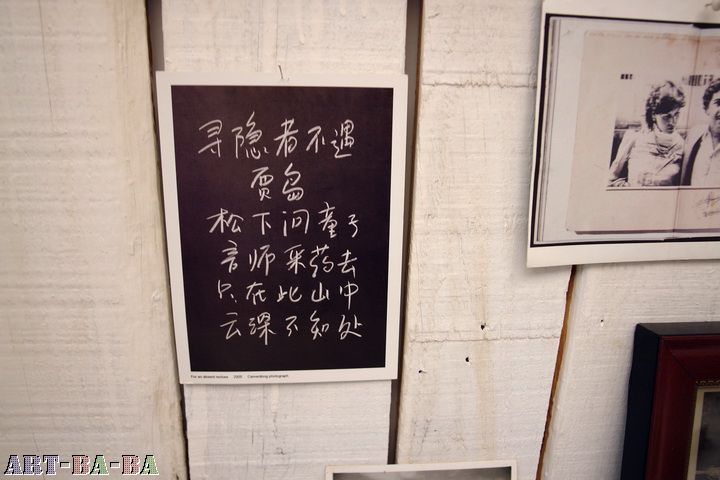 寻隐者不遇
贾岛
松下问童子
言师采药去
只在此山中
云深不知处
For an absent recluse 2005 Cameraborg photograph
ART-BA-BA